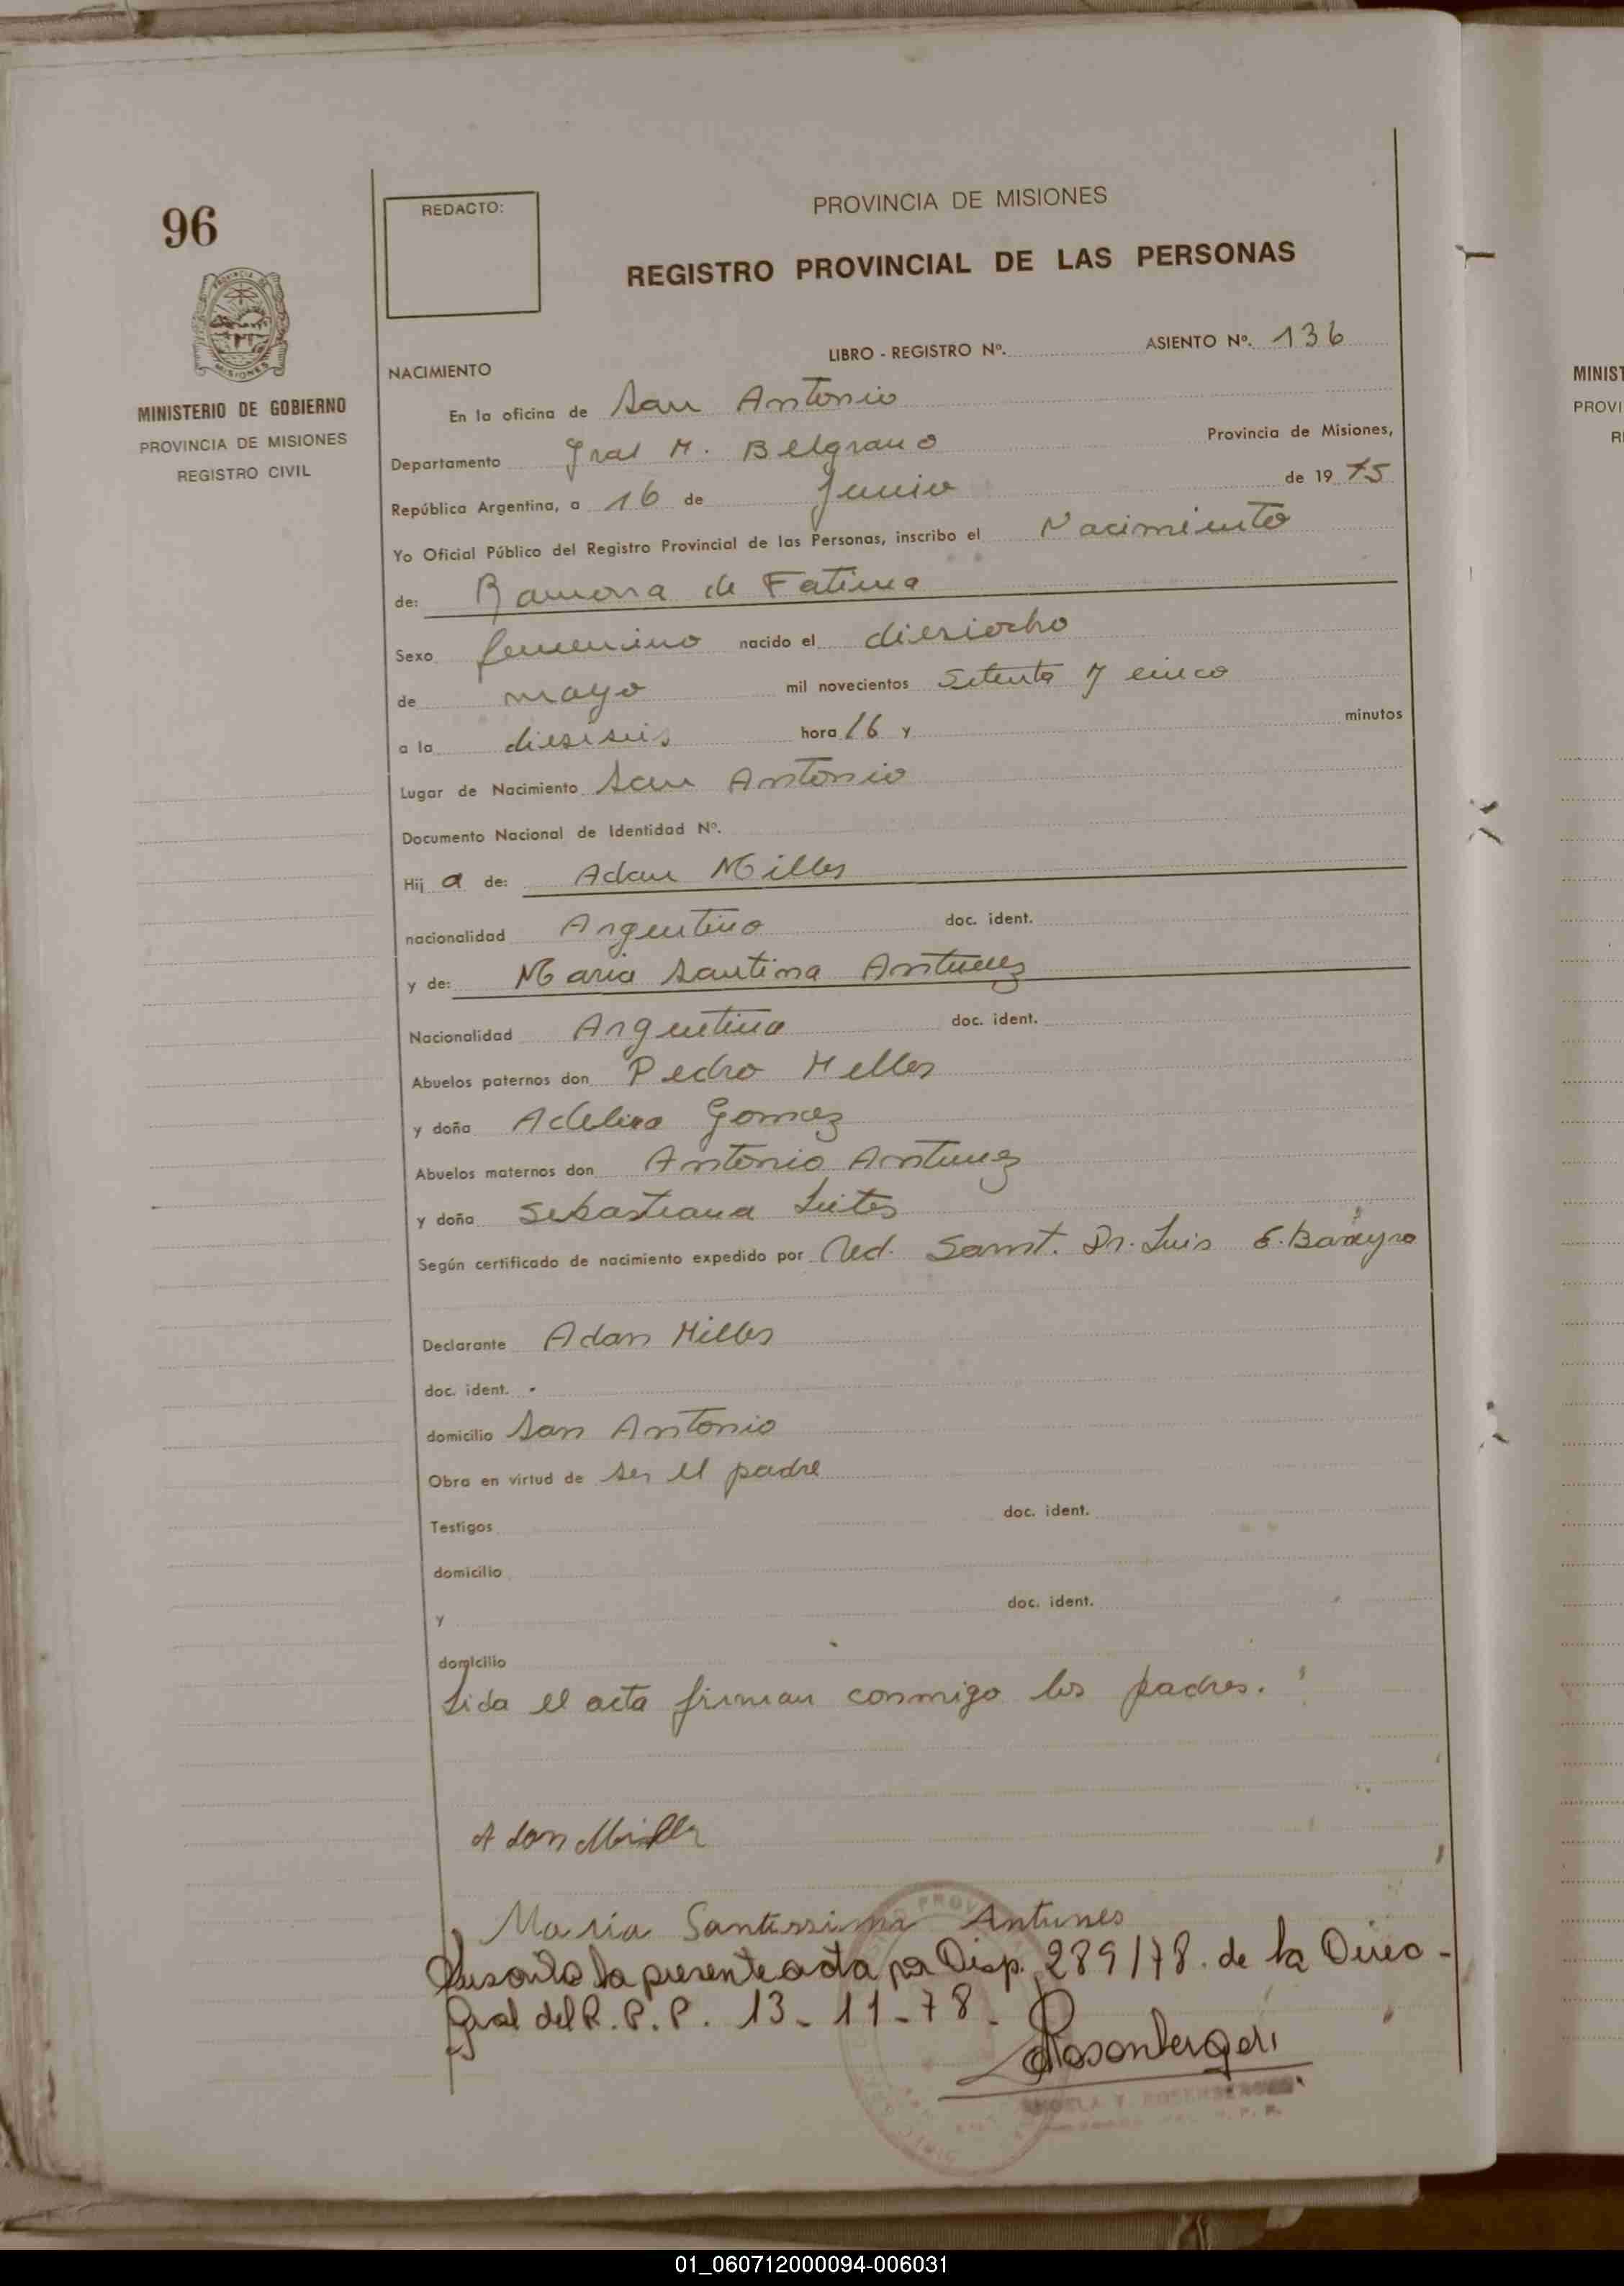 96
REDACTO:
PROVINCIA DE MISIONES
REGISTRO PROVINCIAL DE LAS PERSONAS
MINISTERIO DE GOBIERNO
PROVINCIA DE MISIONES
REGISTRO CIVIL
LIBRO - REGISTRO Nº. ASIENTO Nº. 136
NACIMIENTO
En la oficina de San Antonio
Departamento Gral M. Belgrano Provincia de Misiones,
República Argentina, a 16 de Junio de 19 75
Yo Oficial Público del Registro Provincial de las Personas, inscribo el Nacimiento
de: Ramona de Fatima
Sexo femenino nacido el diesiocho
de mayo mil novecientos Setenta y cinco
a la diesiseis hora 16 y minutos
Lugar de Nacimiento San Antonio
Documento Nacional de Identidad Nº.
Hij a de: Adan Milles
nacionalidad Argentino doc. ident.
y de: Maria Santina Antunez
Nacionalidad Argentina doc. ident.
Abuelos paternos don Pedro Melles
y doña Adelina Gomez
Abuelos maternos don Antonio Antunez
y doña Sebastiana Leites
Según certificado de nacimiento expedido por Ud. Sanit. Dr. Luis E. Bareyro
Declarante Adan Milles
doc. ident.
domicilio San Antonio
Obra en virtud de ser el padre
Testigos doc. ident.
domicilio
y doc. ident.
domicilio
Lida el acta firman conmigo los padres.
Adan
Maria Santissima Antunes
la presente acta por Disp. 289/78. de la Direc-
Gral del R.P.P. 13-11-78.
MINIST
PROVI
R
01_060712000094-006031